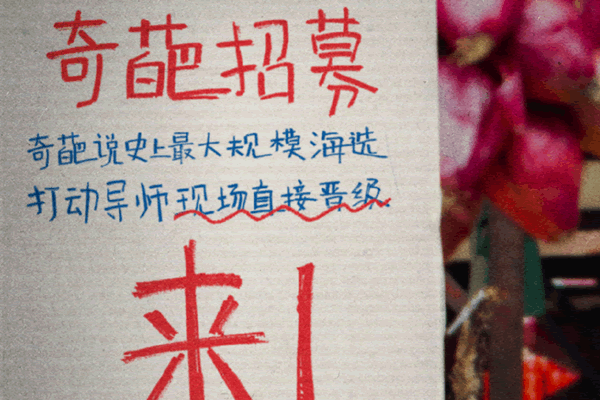 奇葩招募
奇葩说史上最大规模海选
打动导师现场直接晋级
来!